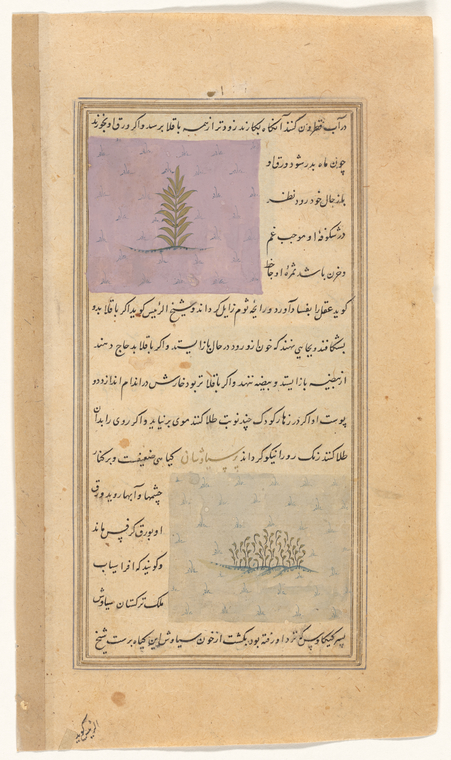 در آب قطرون کنند آنکاه بکارند زودتر از همه باقلا برسد و اکر ورق او بخورند
چون ماه بدر شود ورق او
بلز حال خود رود نظر
در شکوفهٔ او موجب غم
و حزن باشد ثمرهٔ او جاحظ
کوید عقل را بفساد آورد و رایحهٔ ثوم زایل کرداند و شیخ الرئیس کوید اکر باقلا بدو
بشکافند و بجایی نهند که خون ازو رود در حال باز ایستد و اکر باقلا بدجاج دهند
از بیضه باز ایستد و بیضه ننهد و اکر باقلا تر بود خارش در اندام اندازد و
پوست او اکر در زهار کودک چند نوبت طلا کنند موی بر نیاید و اکر روی را بدان
طلا کنند رنک رو را نیکو کرداند پرسیاوشان کیاهی ضعیفست و بر کنار
چشمها و آبها روید ورق
او بورق کرفس ماند
و کویند که افراسیاب
ملک ترکستان سیاوش
پسر کیکاوس که نزد او رفته بود بکشت از خون سیاوش این کیاه برست شیخ
الرئیس کوید